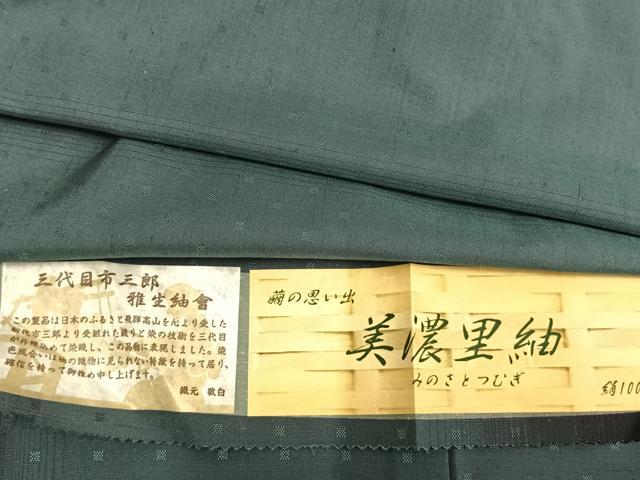 三代目市三郎
雅生紬會
この製品は日本のふるさと飛騨高山を心より愛した
初代市三郎より受継れた織りと染の技術を三代目
が丹精込めて染織し、この着物に表現しました。染
色風合いは他の織物に見られない特徴を持って居り、
確信を持って御推め申し上げます。
織元 敬白
繭の思い出
美濃里紬
みのさとつむぎ
絹100